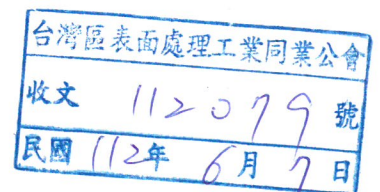 台灣區表面處理工業同業公會
收文 112079 號
民國 112年 6月 7日